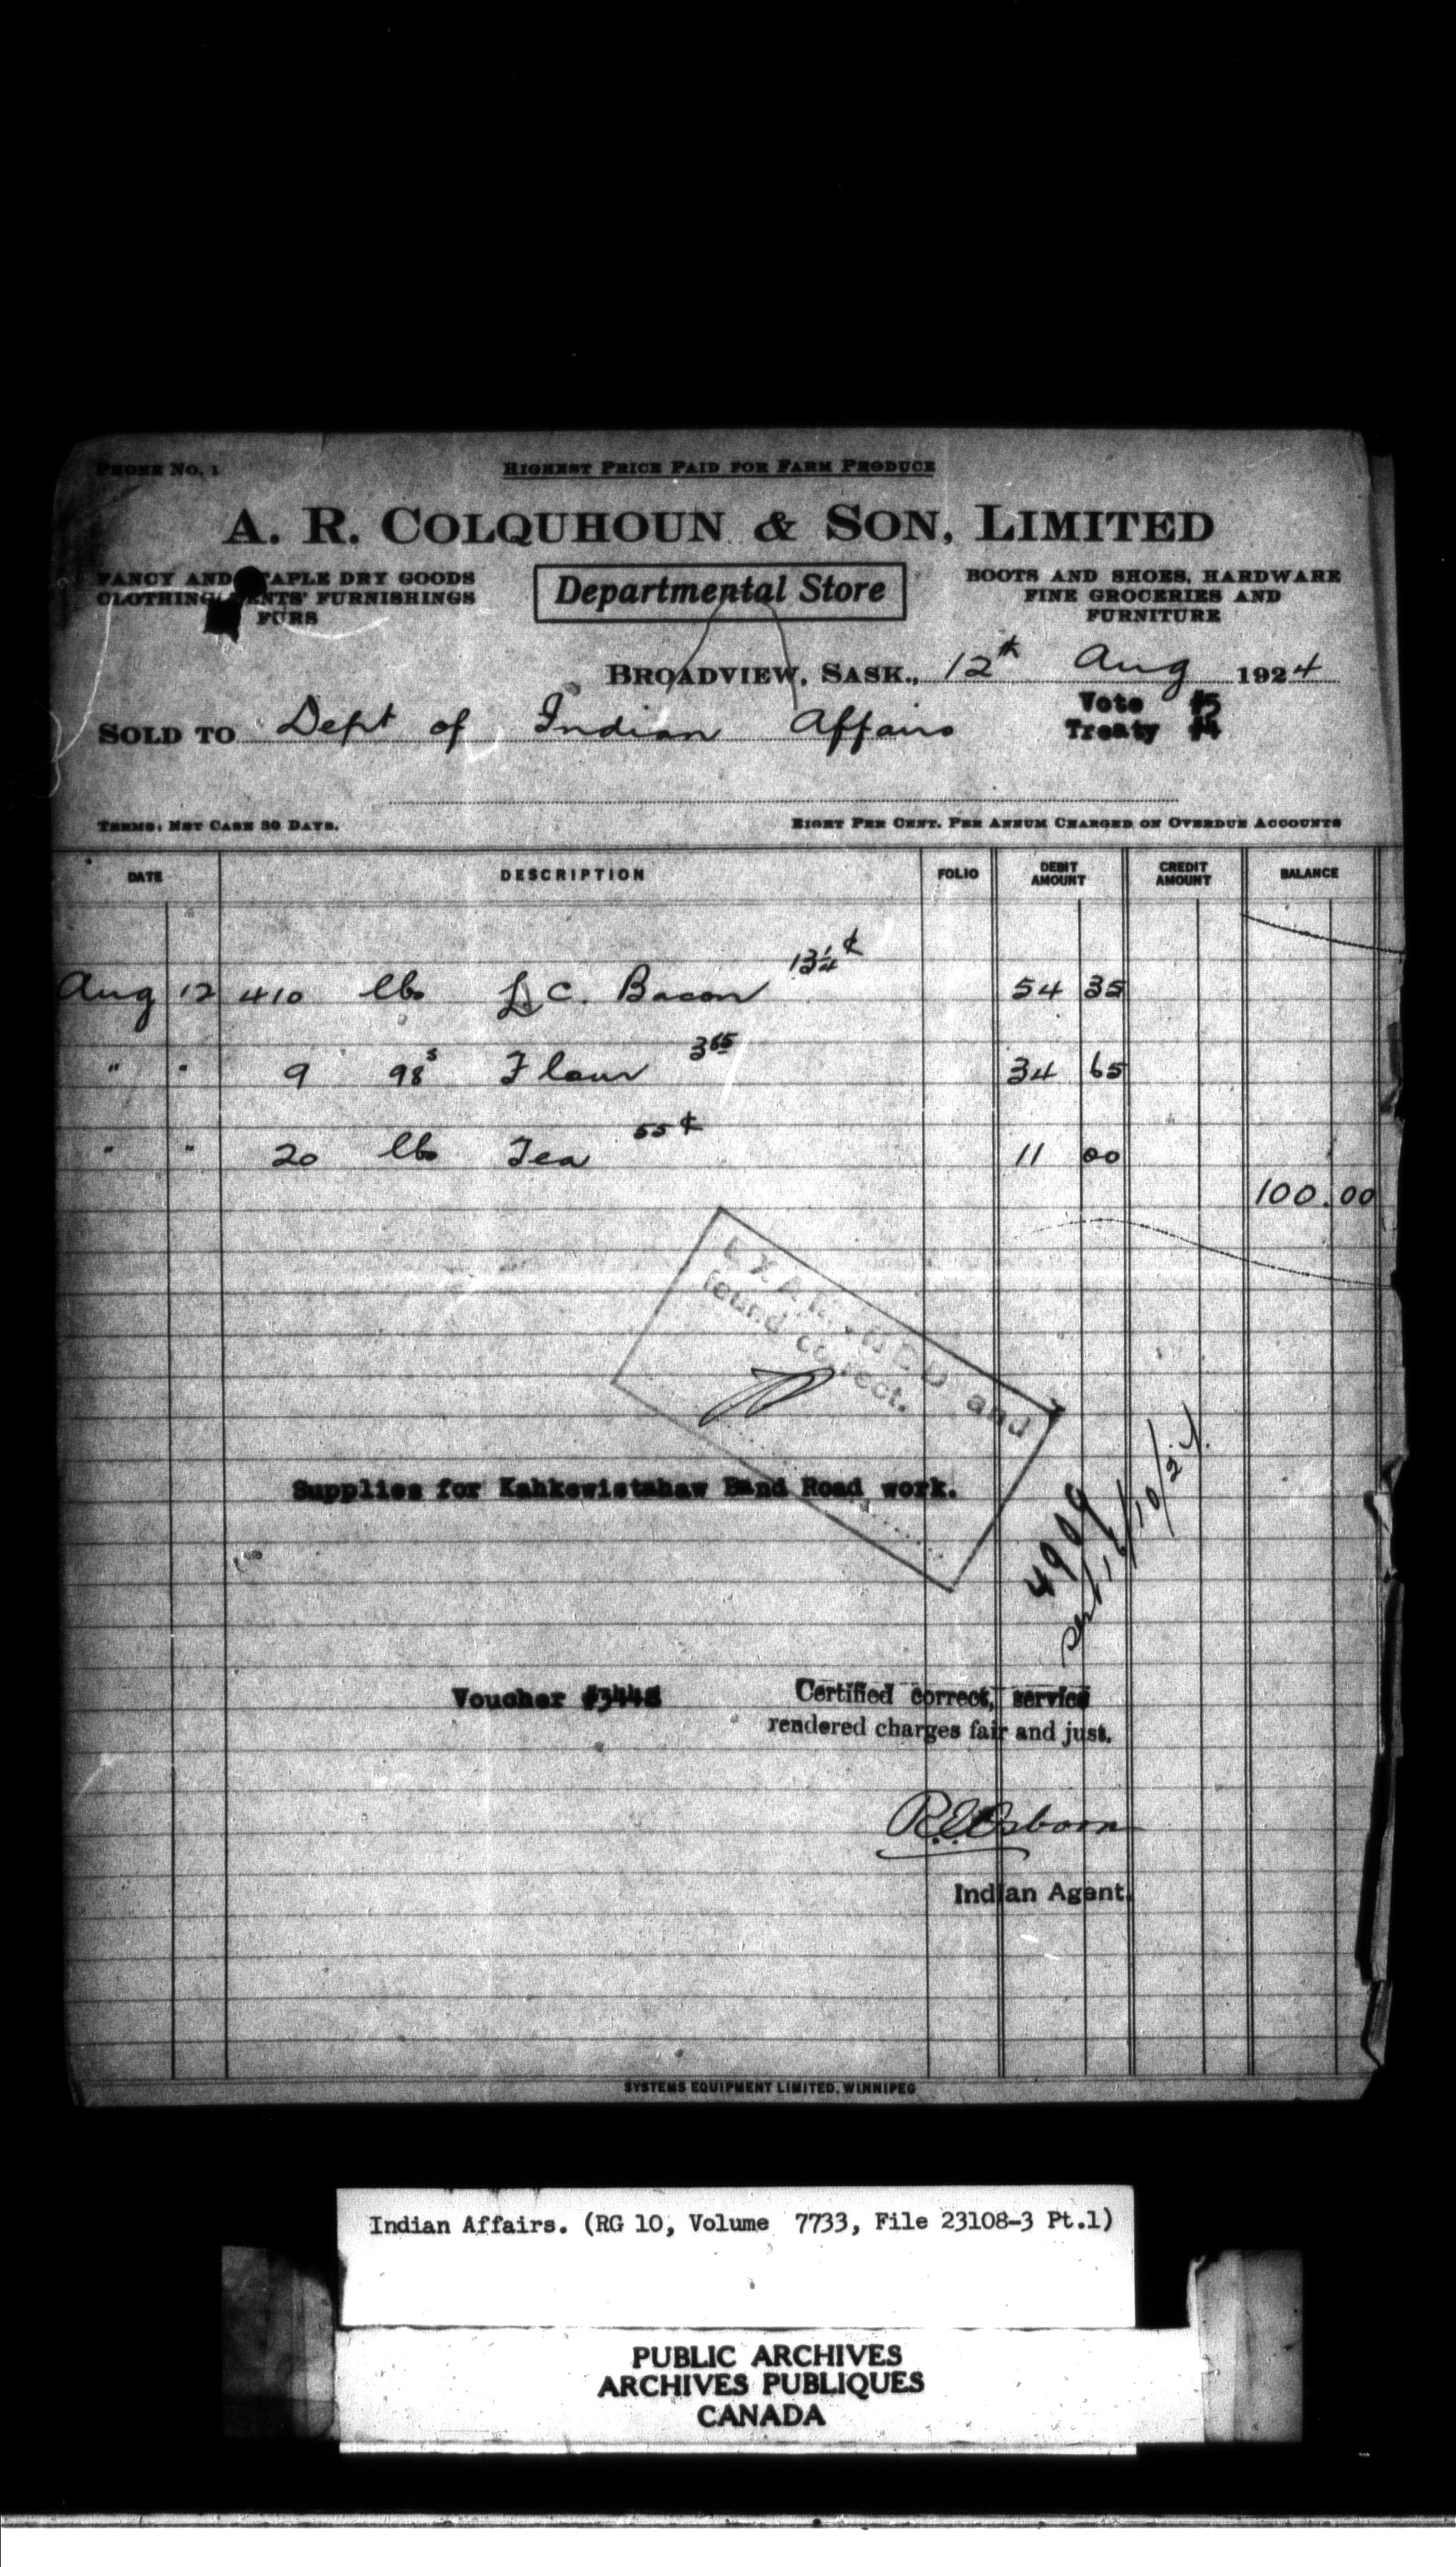 PHONE NO. 1
HIGHEST PRICE PAID FOR FARM PRODUCE
A. R. COLQUHOUN & SON, LIMITED
FANCY AND TAPLE DRY GOODS
CLOTHING ENTS' FURNISHINGS
FURS
Departmental Store
BOOTS AND SHOES, HARDWARE
FINE GROCERIES AND
FURNITURE
BROADVIEW, SASK., 12th Aug 1924
Vote #5
SOLD TO Dept of Indian Affairs
Treaty #4
TERMS: NET CASH 30 DAYS.
EIGHT PER CENT. PER ANNUM CHARGED ON OVERDUE ACCOUNTS
DATE DESCRIPTION FOLIO DEBIT AMOUNT CREDIT AMOUNT BALANCE
Aug 12 410 lbs C. Bacon 13¼ ¢ 54 35
" " 9 98s Flour 3 65 34 65
" " 20 lbs Tea 55 ¢ 11 00
100.00
EXAMINED and
found correct.
Supplies for Kahkewistahaw Band Road work.
4909
16/10/24.
Voucher #3448
Certified correct, service
rendered charges fair and just.
R.E. Osborn
Indian Agent.
SYSTEMS EQUIPMENT LIMITED, WINNIPEG
Indian Affairs. (RG 10, Volume 7733, File 23108-3 Pt.1)
PUBLIC ARCHIVES
ARCHIVES PUBLIQUES
CANADA